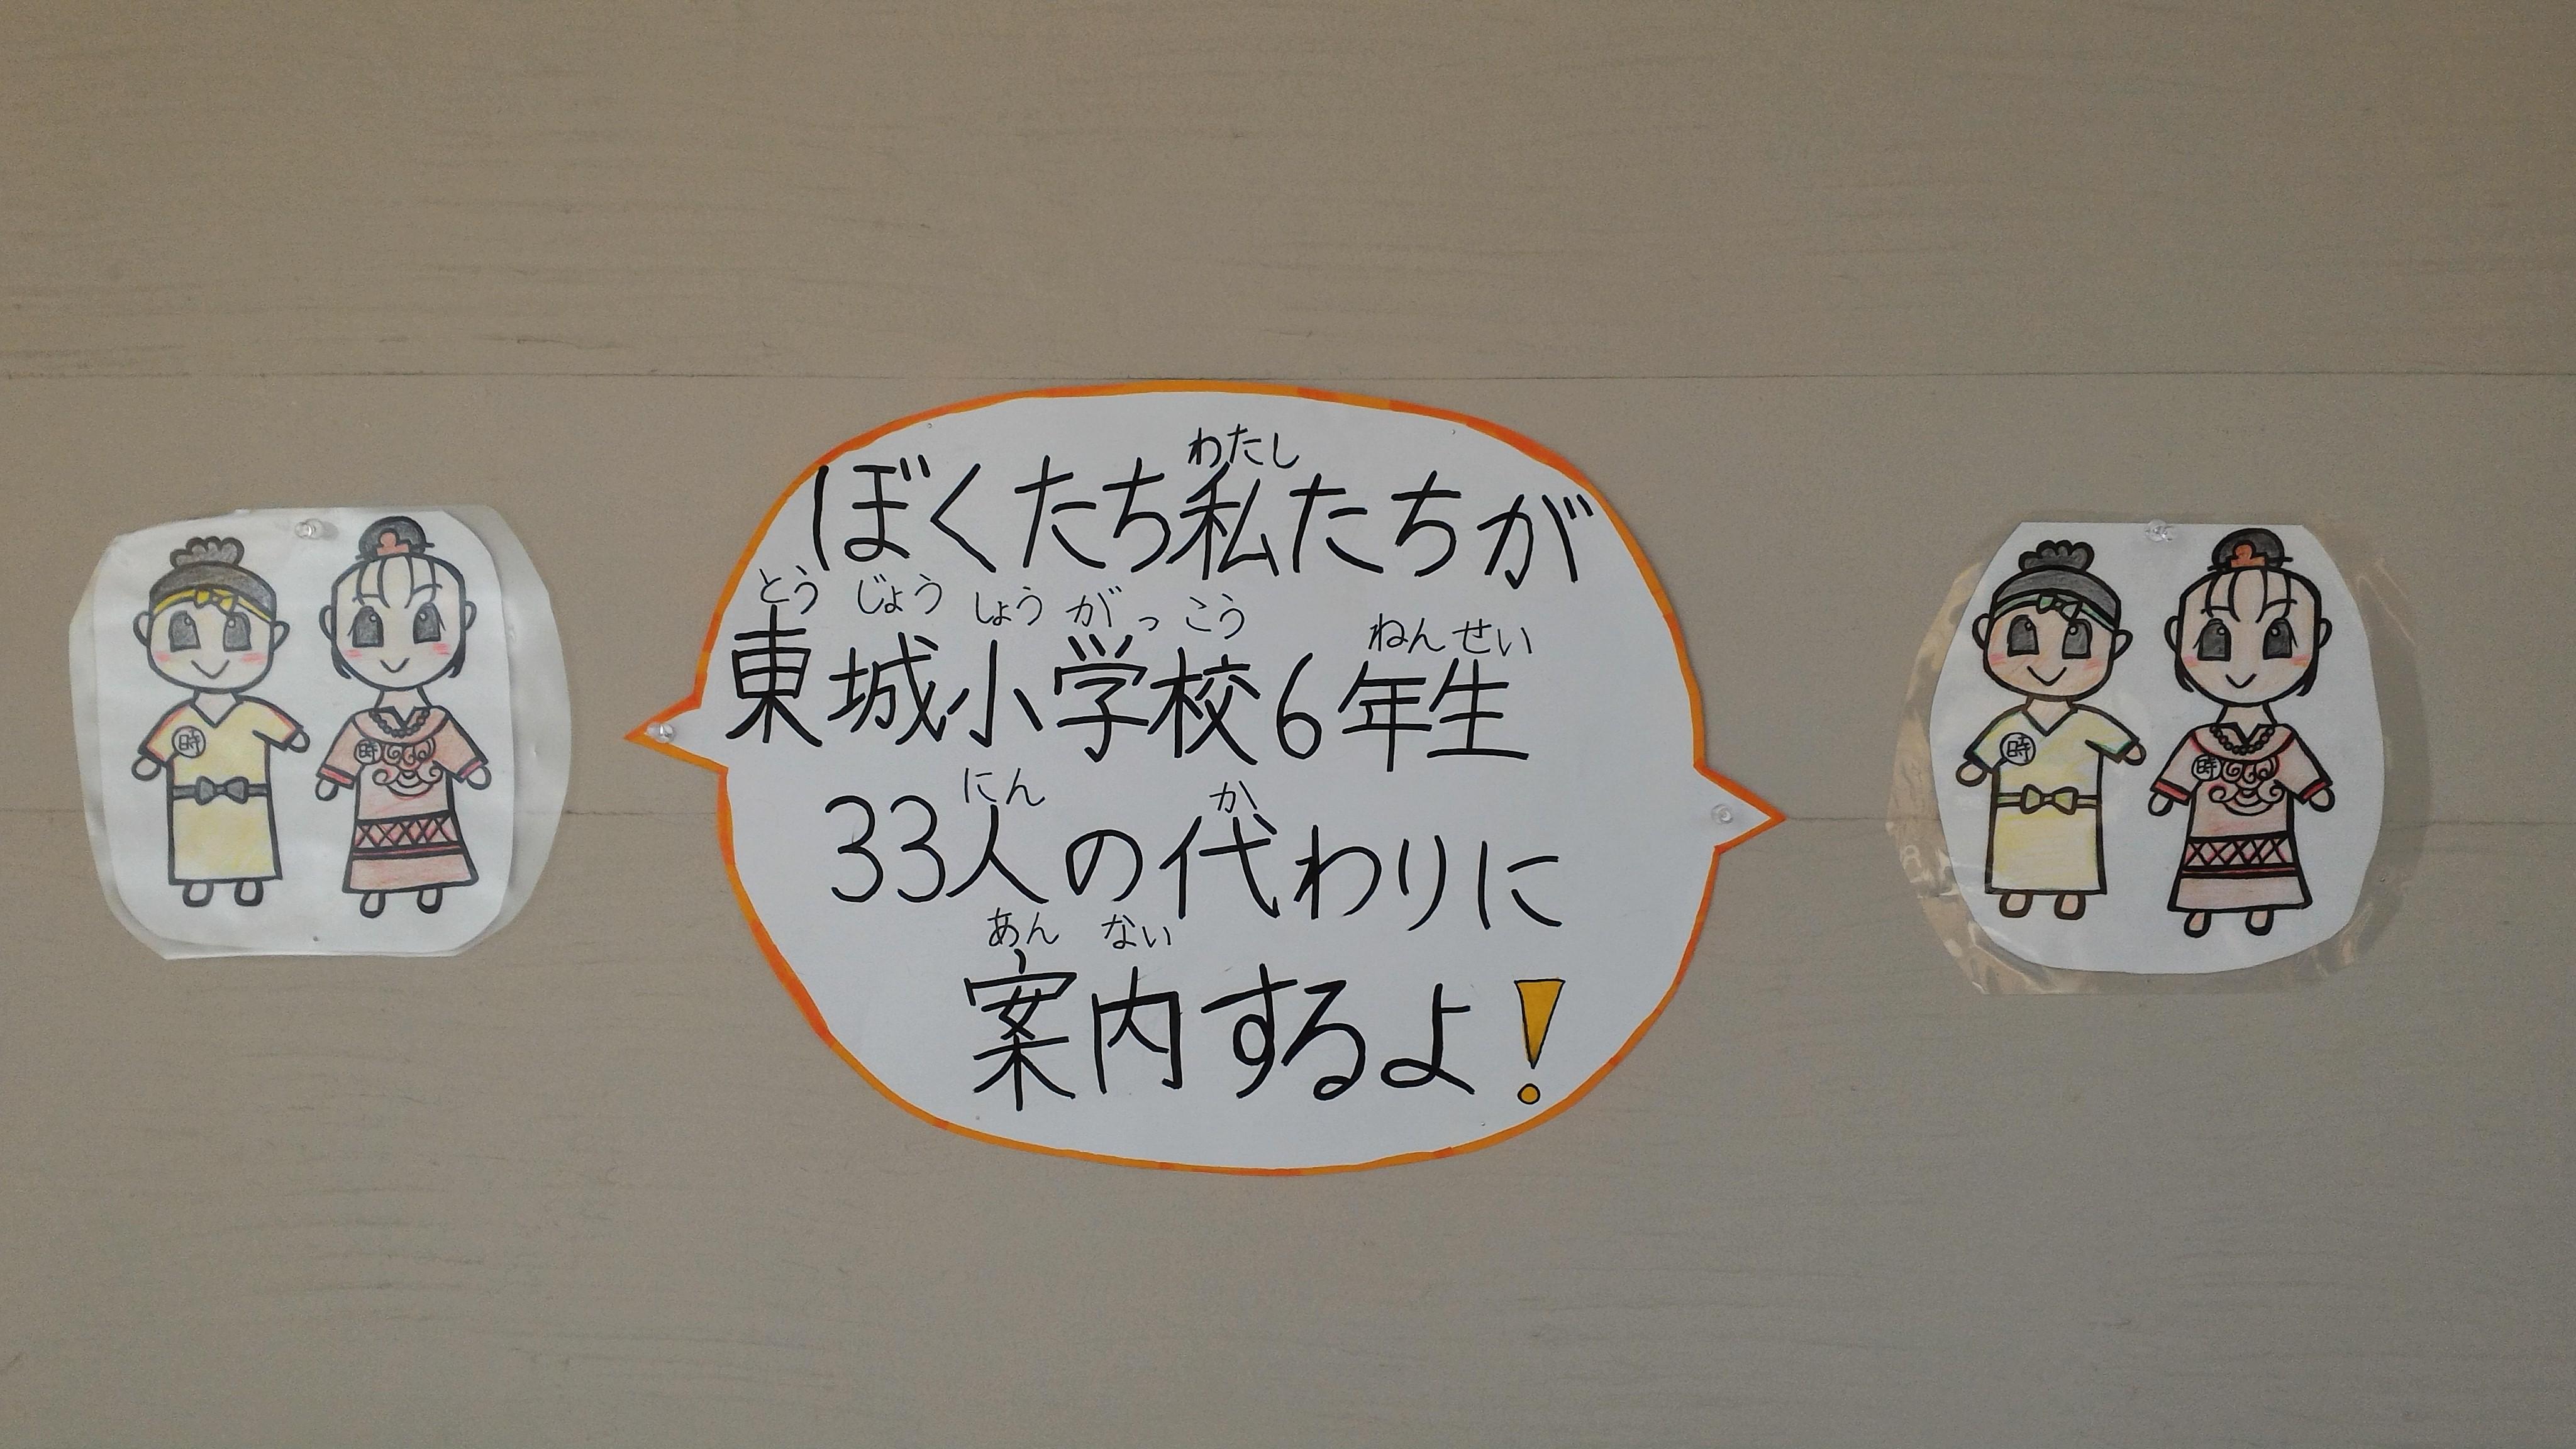 わたし
ぼくたち私たちが
とうじょうしょうがっこう ねんせい
東城小学校6年生
にん か
33人の代わりに
あん ない
案内するよ!
時
時
時
時